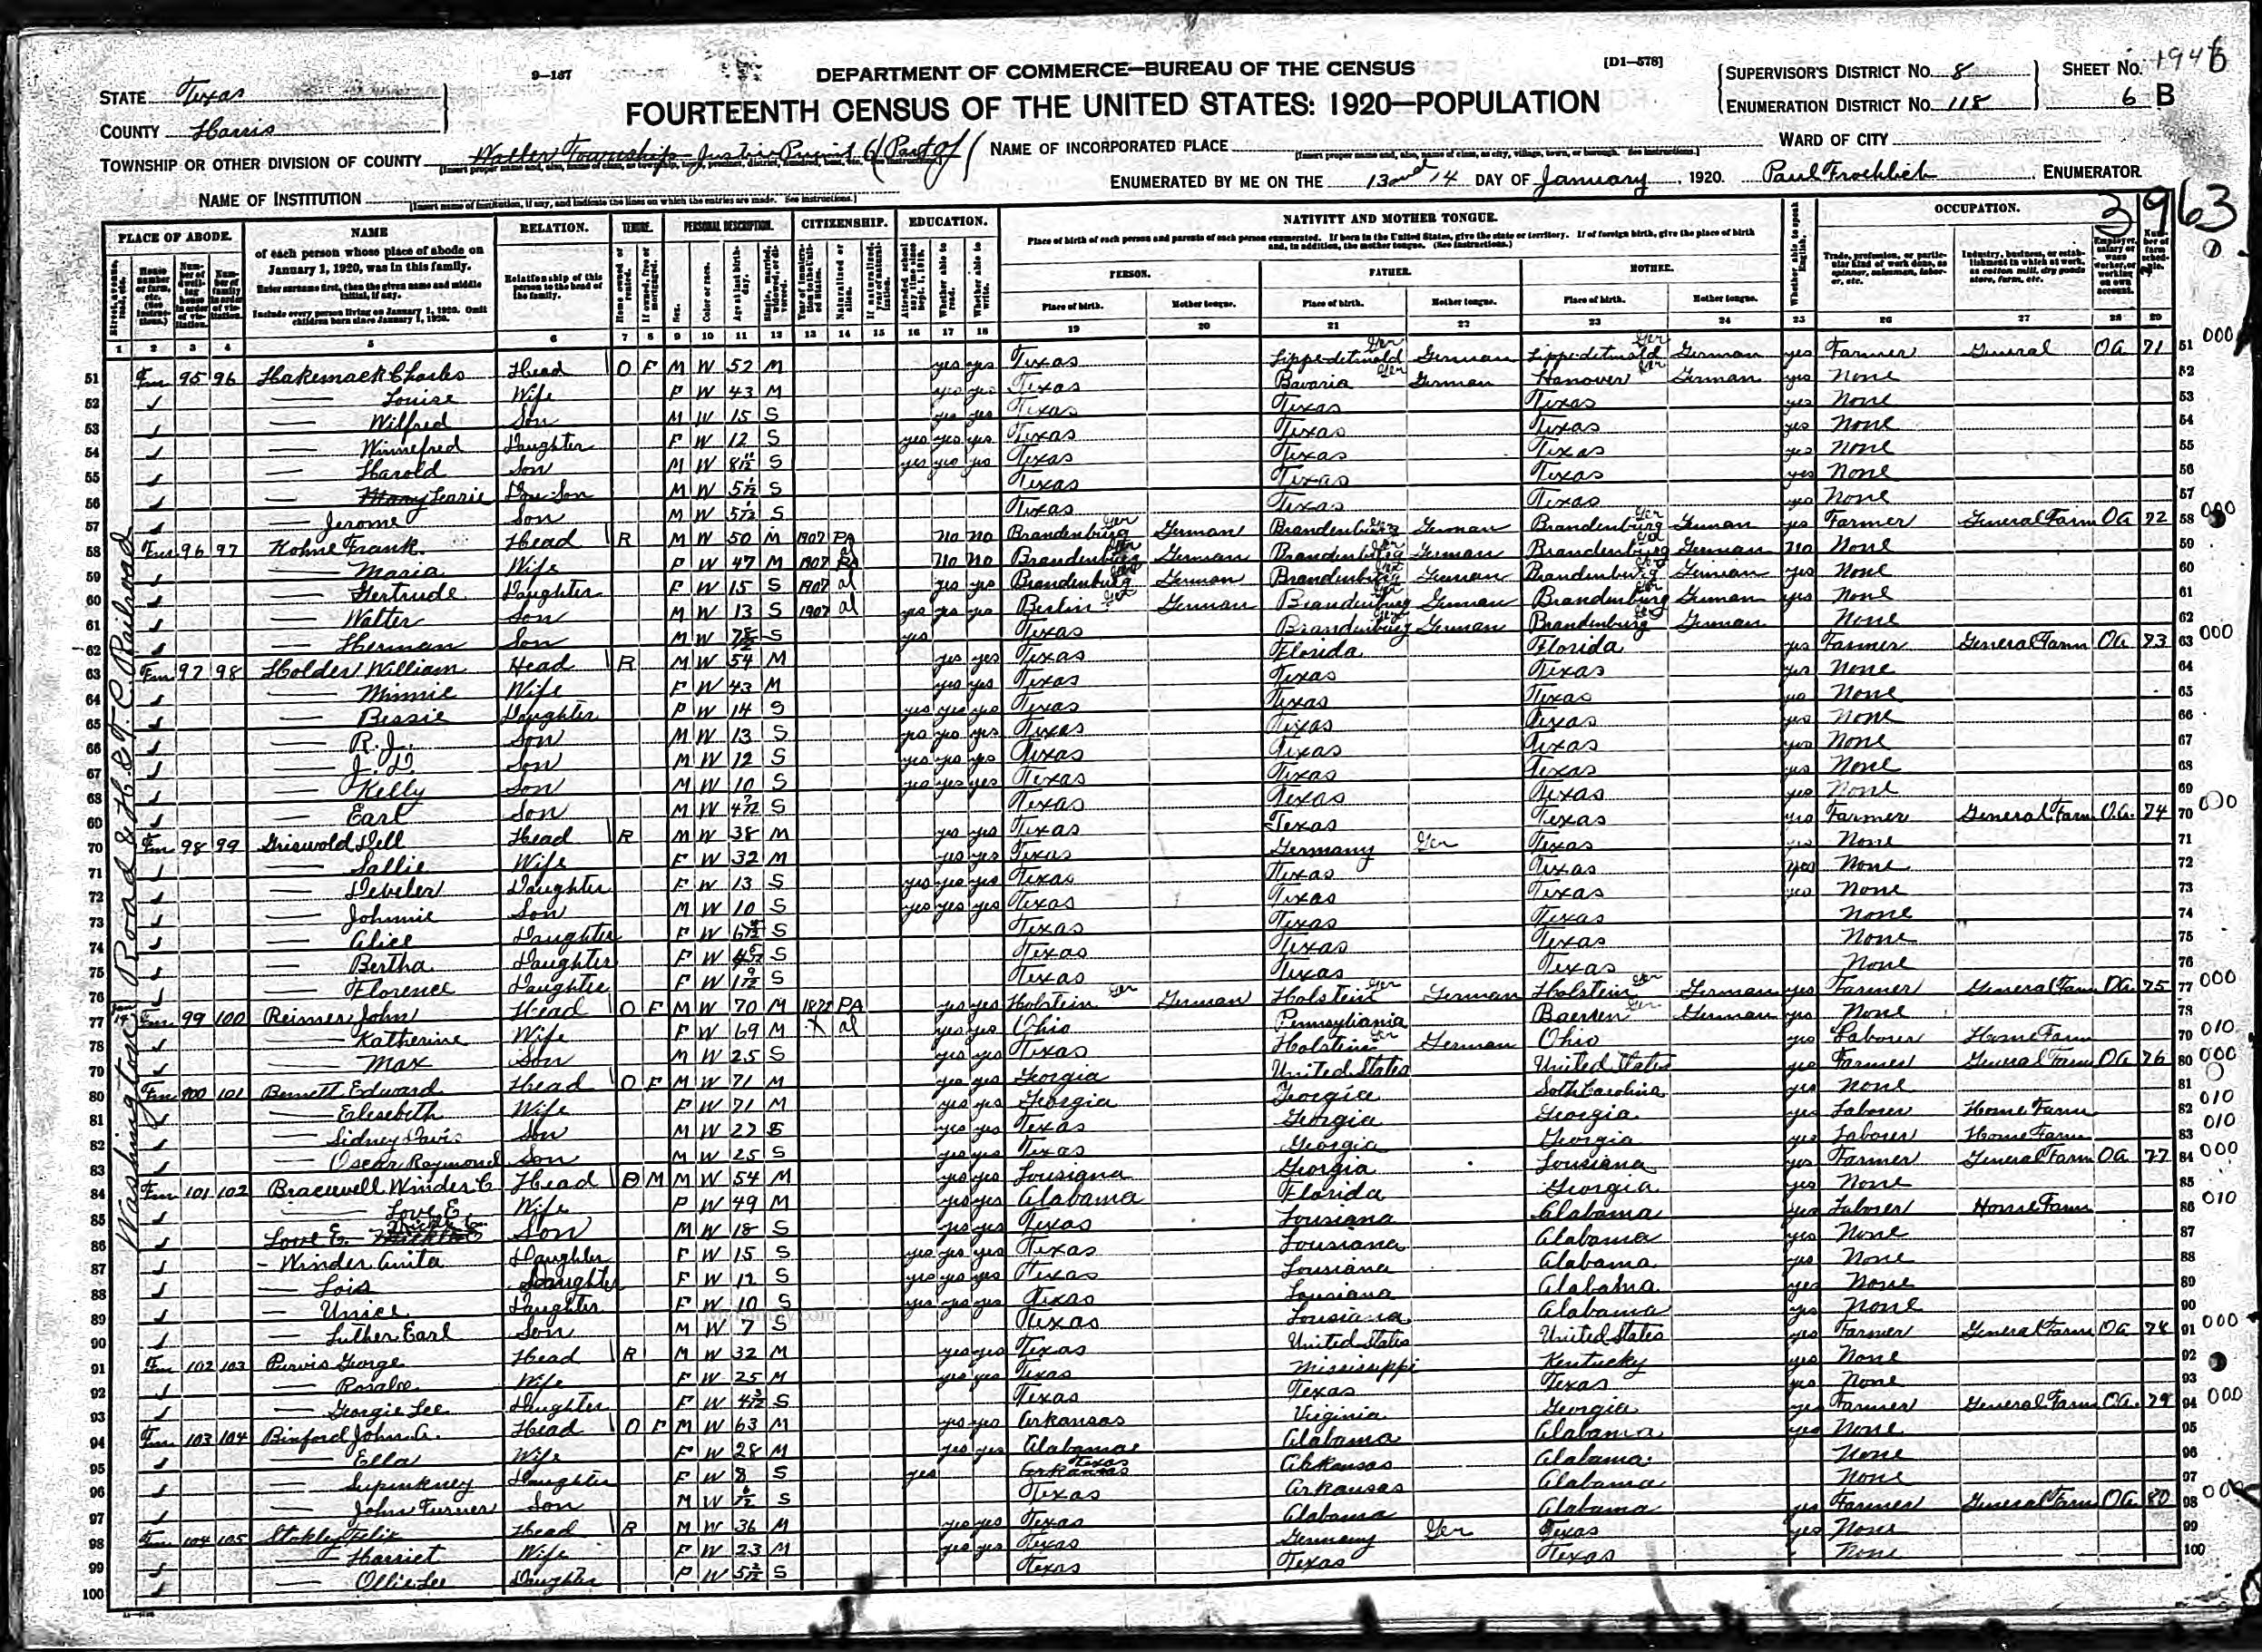 9-137
DEPARTMENT OF COMMERCE—BUREAU OF THE CENSUS
[D1-578]
FOURTEENTH CENSUS OF THE UNITED STATES: 1920—POPULATION
STATE Texas
COUNTY Harris
TOWNSHIP OR OTHER DIVISION OF COUNTY Waller Township Justice Precinct 6 (Part of)
NAME OF INSTITUTION
NAME OF INCORPORATED PLACE
WARD OF CITY
SUPERVISOR'S DISTRICT NO. 8
ENUMERATION DISTRICT NO. 118
SHEET NO. 6 B
ENUMERATED BY ME ON THE 13 and 14 DAY OF January, 1920. Paul Froehlich, ENUMERATOR
3963
PLACE OF ABODE. NAME RELATION. TENURE. PERSONAL DESCRIPTION. CITIZENSHIP. EDUCATION. NATIVITY AND MOTHER TONGUE. OCCUPATION.
of each person whose place of abode on January 1, 1920, was in this family.
Enter surname first, then the given name and middle initial, if any.
Include every person living on January 1, 1920. Omit children born since January 1, 1920.
Relationship of this person to the head of the family.
Place of birth of each person and parents of each person enumerated. If born in the United States, give the state or territory. If of foreign birth, give the place of birth and, in addition, the mother tongue. (See instructions.)
PERSON. FATHER. MOTHER.
Place of birth. Mother tongue. Place of birth. Mother tongue. Place of birth. Mother tongue.
1 2 3 4 5 6 7 8 9 10 11 12 13 14 15 16 17 18 19 20 21 22 23 24 25 26 27 28 29
Washington Road & H. & T. C. Railroad
51 Fm 95 96 Hakemack Charles Head O F M W 52 M yes yes Texas Lippe-detmold Ger German Lippe-detmold Ger German yes Farmer General OA 71
52 — Louise Wife F W 43 M yes yes Texas Bavaria Ger German Hanover Ger German yes None
53 — Wilfred Son M W 15 S yes yes Texas Texas Texas yes None
54 — Winnefred Daughter F W 12 S yes yes yes Texas Texas Texas yes None
55 — Harold Son M W 8 11/12 S yes yes yes Texas Texas Texas yes None
56 — Son M W 5 1/12 S Texas Texas Texas yes None
57 — Jerome Son M W 5 1/12 S Texas Texas Texas yes None
58 Fm 96 97 Kohne Frank Head R M W 50 M 1907 PA No No Brandenburg Ger German Brandenburg Ger German Brandenburg Ger German yes Farmer General Farm OA 72
59 — Maria Wife F W 47 M 1907 No No Brandenburg Ger German Brandenburg Ger German Brandenburg Ger German No None
60 — Gertrude Daughter F W 15 S 1907 al yes yes Brandenburg Ger German Brandenburg Ger German Brandenburg Ger German yes None
61 — Walter Son M W 13 S 1907 al yes yes yes Berlin Ger German Brandenburg Ger German Brandenburg Ger German yes None
62 — Herman Son M W S yes Texas Brandenburg Ger German Brandenburg Ger German None
63 Fm 97 98 Holder William Head R M W 54 M yes yes Texas Florida Florida yes Farmer General Farm OA 73
64 — Minnie Wife F W 43 M yes yes Texas Texas Texas yes None
65 — Bessie Daughter F W 14 S yes yes yes Texas Texas Texas yes None
66 — R. J. Son M W 13 S yes yes yes Texas Texas Texas yes None
67 — J. D. Son M W 12 S yes yes yes Texas Texas Texas yes None
68 — Kelly Son M W 10 S yes yes yes Texas Texas Texas yes None
69 — Earl Son M W S Texas Texas Texas yes None
70 Fm 98 99 Griswold Dell Head R M W 38 M yes yes Texas Texas Texas yes Farmer General Farm O.A. 74
71 — Sallie Wife F W 32 M yes yes Texas Germany Ger Texas yes None
72 — Daughter F W 13 S yes yes yes Texas Texas Texas yes None
73 — Johnnie Son M W 10 S yes yes yes Texas Texas Texas yes None
74 — Alice Daughter F W S Texas Texas Texas None
75 — Bertha Daughter F W S Texas Texas Texas None
76 — Florence Daughter F W 1 9/12 S Texas Texas Texas None
77 Fm 99 100 Reimer John Head O F M W 70 M PA yes yes Holstein Ger German Holstein Ger German Holstein Ger German yes Farmer General Farm OA 75
78 — Katherine Wife F W 69 M X al yes yes Ohio Pennsylvania Baeren Ger German yes None
79 — Max Son M W 25 S yes yes Texas Holstein Ger German Ohio yes Laborer Home Farm
80 Fm 100 101 Bennett Edward Head O F M W 71 M yes yes Georgia United States United States yes Farmer General Farm OA 76
81 — Elisebeth Wife F W 71 M yes yes Georgia Georgia Soth Carolina yes None
82 — Sidney Davis Son M W 27 S yes yes Texas Georgia Georgia yes Laborer Home Farm
83 — Oscar Raymond Son M W 25 S yes yes Texas Georgia Georgia yes Laborer Home Farm
84 Fm 101 102 Bracewell Winder C Head O M M W 54 M yes yes Lousiana Georgia Lousiana yes Farmer General Farm OA 77
85 — Love E. Wife F W 49 M yes yes Alabama Florida Georgia yes None
86 Son M W 18 S yes yes Texas Lousiana Alabama yes Laborer Home Farm
87 — Winder Anita Daughter F W 15 S yes yes yes Texas Lousiana Alabama yes None
88 — Lois Daughter F W 12 S yes yes yes Texas Lousiana Alabama yes None
89 — Unice Daughter F W 10 S yes yes yes Texas Lousiana Alabama yes None
90 — Luther Earl Son M W 7 S Texas Lousiana Alabama yes None
91 Fm 102 103 Purvis George Head R M W 32 M yes yes Texas United States United States yes Farmer General Farm OA 78
92 — Rosalee Wife F W 25 M yes yes Texas Mississippi Kentucky yes None
93 — Georgie Lee Daughter F W 4 3/12 S Texas Texas Texas yes None
94 Fm 103 104 Binford John A. Head O F M W 63 M yes yes Arkansas Virginia Georgia yes Farmer General Farm O.A. 79
95 — Ella Wife F W 28 M yes yes Alabama Alabama Alabama yes None
96 — Daughter F W 8 S yes Texas Arkansas Alabama None
97 — John Turner Son M W 6/12 S Texas Arkansas Alabama None
98 Fm 104 105 Stokley Felix Head R M W 36 M yes yes Texas Alabama Alabama yes Farmer General Farm OA 80
99 — Harriet Wife F W 23 M yes yes Texas Germany Ger Texas yes None
100 — Ollie Lee Daughter F W S Texas Texas Texas None